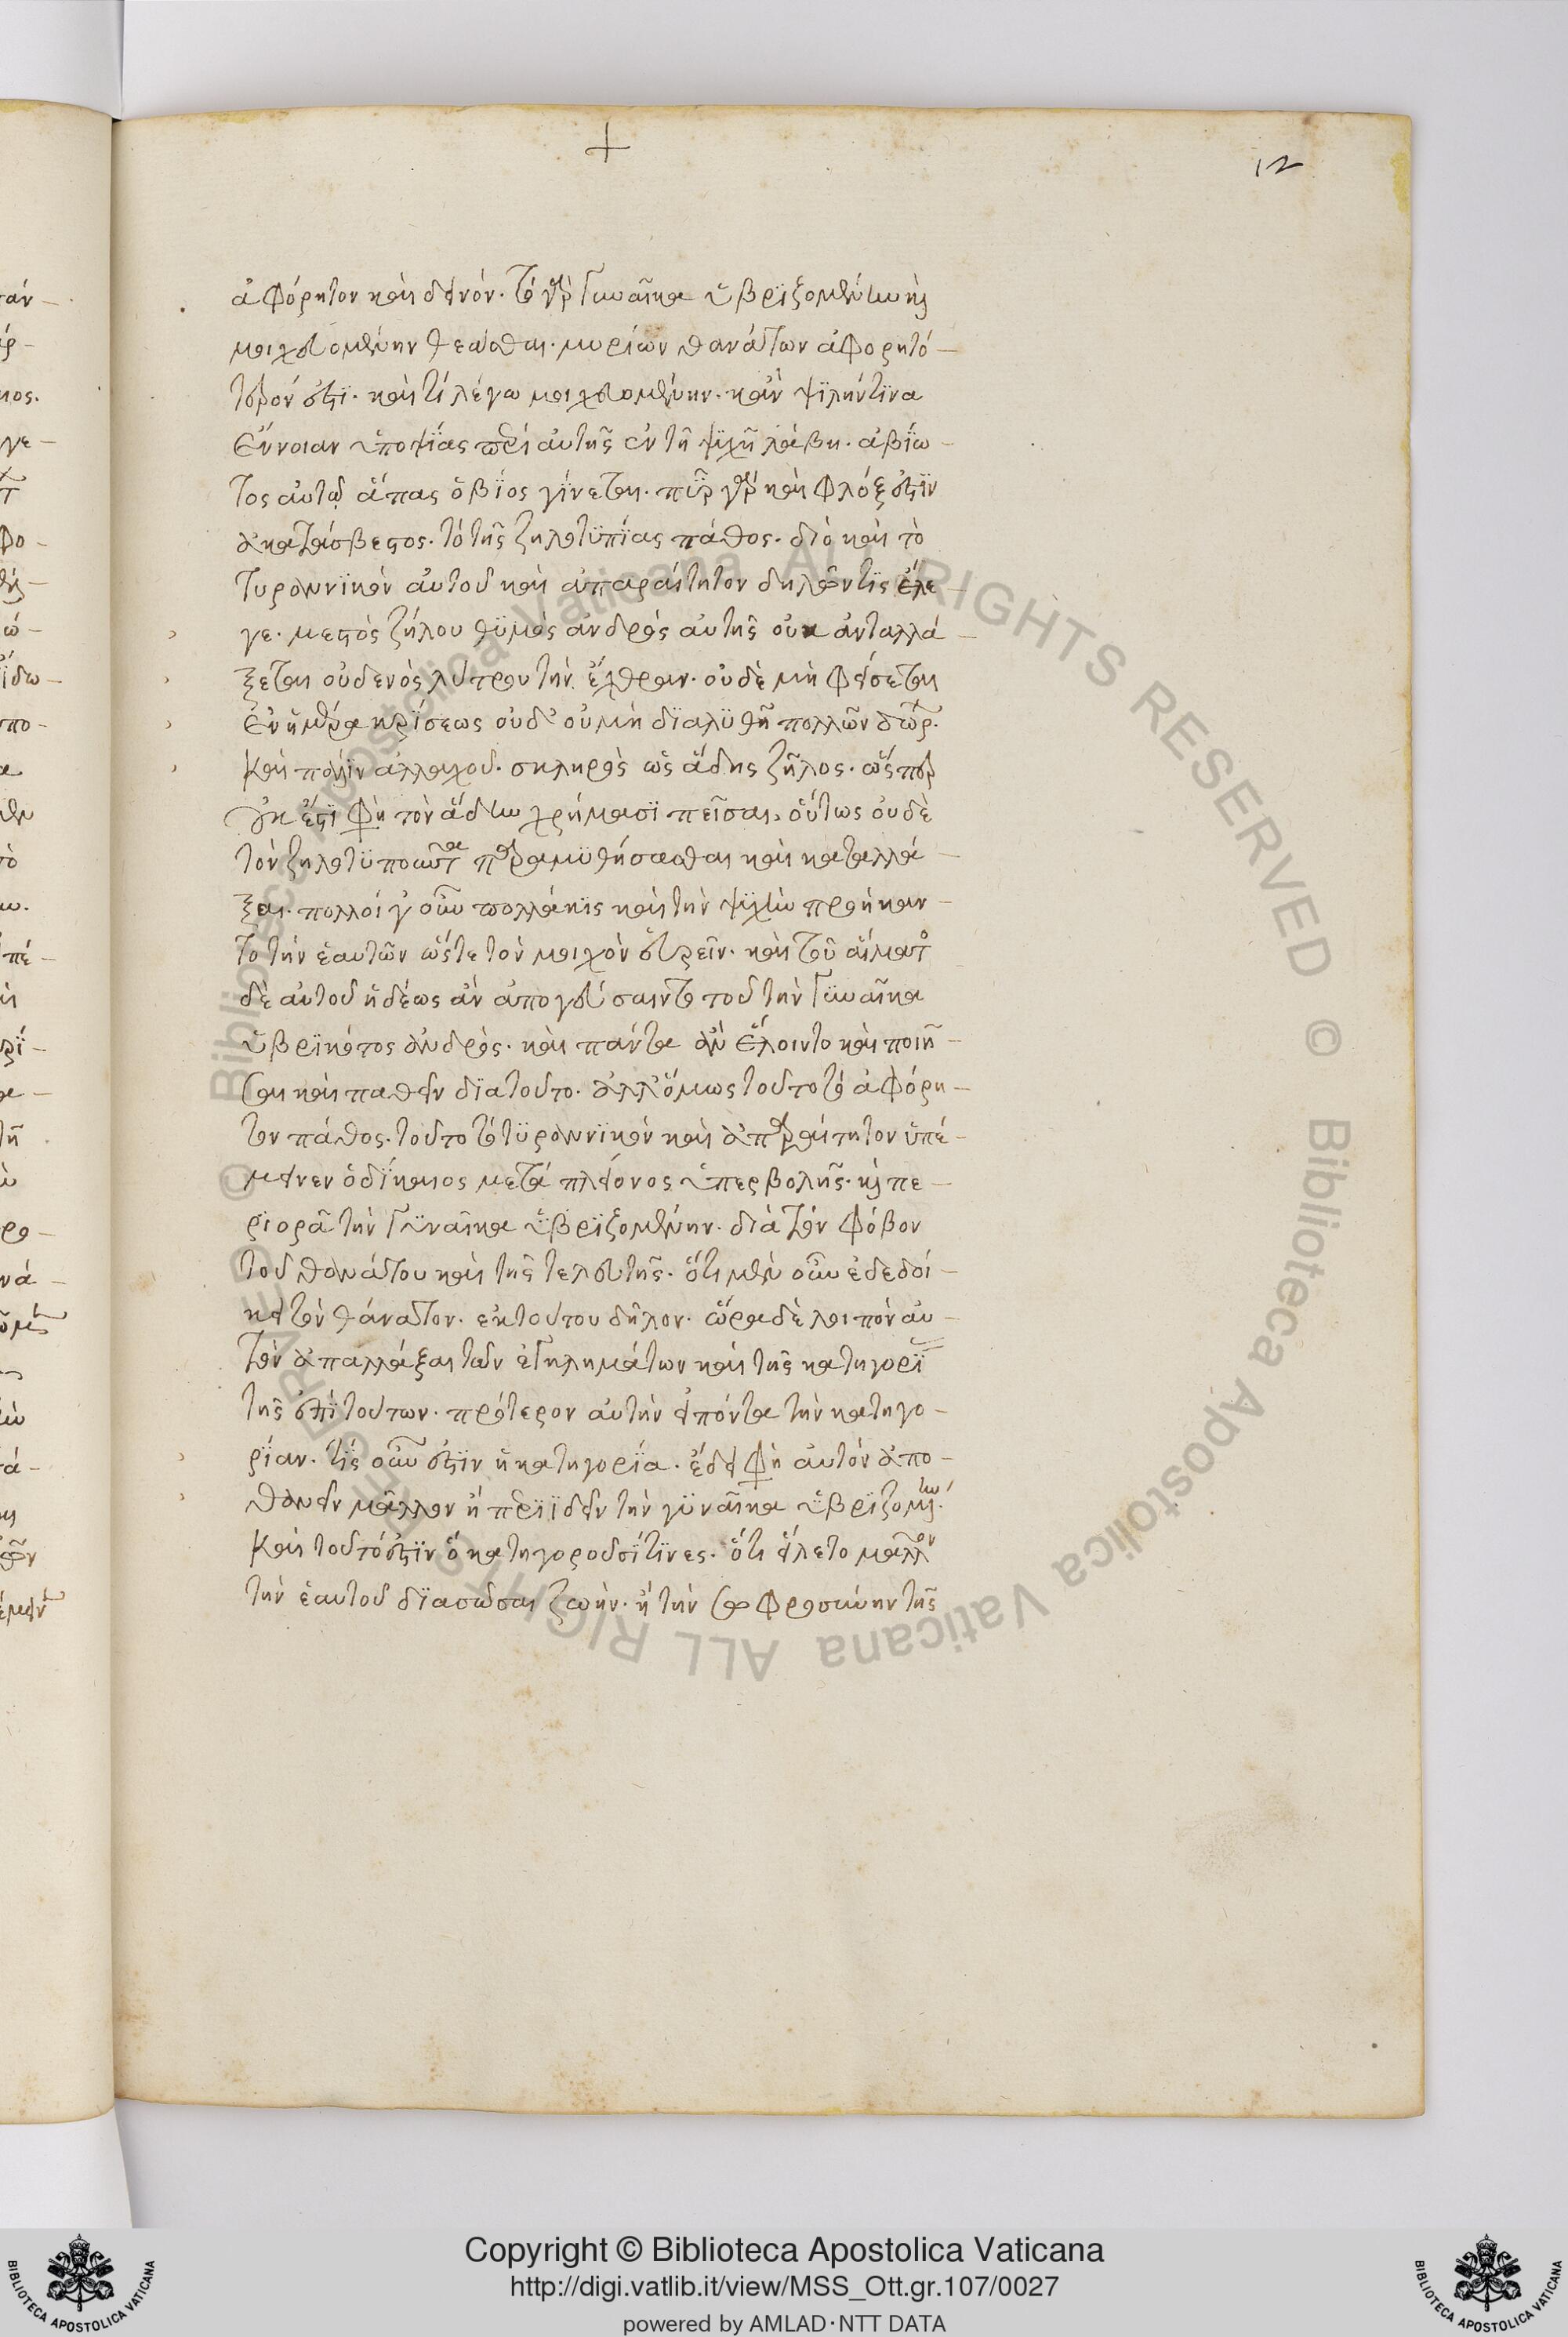 +
12
ἀφόρητον καὶ δεινόν. τὸ γὰρ γυναῖκα ὑβριζομένην κ̀
μοιχευομένην θεᾶσθαι. μυρίων θανάτων ἀφορητό -
τερόν ἐστι. καὶ τί λέγω μοιχευομένην. κἂν ψιλήν τινα
ἔννοιαν ὑποψίας περὶ αὐτῆς ἐν τῇ ψυχῇ λάβη. ἀβίω -
τος αὐτῷ ἅπας ὁ βίος γίνεται. πῦρ γὰρ καὶ φλόξ ἐστιν
ἀκατάσβεστος. τὸ τῆς ζηλοτυπίας πάθος. διὸ καὶ τὸ
τυραννικὸν αὐτοῦ καὶ ἀπαραίτητον δηλῶν τις ἔλε -
γε. μεστὸς ζήλου θυμὸς ἀνδρὸς αὐτῆς οὐκ ἀνταλλά -
ξεται οὐδενὸς λύτρου τὴν ἔχθραν. οὐδὲ μὴ φείσεται
ἐν ἡμέρα κρίσεως οὐδ' οὐ μὴ διαλυθῆ πολλῶν δώρ.
καὶ πάλιν ἀλλαχοῦ. σκληρὸς ὡς ἅδης ζῆλος. ὥσπερ
οὐκ ἔστι φὴ τὸν ἅδην χρήμασι πεῖσαι, οὕτως οὐδὲ
τὸν ζηλοτυποῦντα παραμυθήσασθαι καὶ καταλλά -
ξαι. πολλοί γ' οὖν πολλάκις καὶ τὴν ψυχὴν προήκαν -
το τὴν ἑαυτῶν ὥστε τὸν μοιχὸν εὑρεῖν. καὶ τοῦ αἵματο
δὲ αὐτοῦ ἡδέως ἂν ἀπογεύσαιντο τοῦ τὴν γυναῖκα
ὑβρικότος ἀνδρός. καὶ πάντα ἂν ἕλοιντο καὶ ποιῆ -
σαι καὶ παθεῖν διατοῦτο. ἀλλ' ὅμως τοῦτο τὸ ἀφόρη -
τον πάθος. τοῦτο τὸ τυραννικὸν καὶ ἀπαραίτητον ὑπέ -
μεινεν ὁ δίκαιος μετὰ πλείονος ὑπερβολῆς. κ̀ πε -
ριορᾶ τὴν γυναῖκα ὑβριζομένην. διὰ τὸν φόβον
τοῦ θανάτου καὶ τῆς τελευτῆς. ὅτι μὲν οὖν ἐδεδοί -
κει τὸν θάνατον. ἐκ τούτου δῆλον. ὥρα δὲ λοιπὸν αὐ -
τὸν ἀπαλλάξαι τῶν ἐγκλημάτων καὶ τῆς κατηγορι
τῆς ἐπὶ τούτων. πρότερον αὐτὴν εἰπόντα τὴν κατηγο -
ρίαν. τίς οὖν ἐστιν ἡ κατηγορία. ἔδει φὴ αὐτὸν ἀπο -
θανεῖν μᾶλλον ἢ περιϊδεῖν τὴν γυναῖκα ὑβριζομην.
καὶ τοῦτό ἐστιν ὃ κατηγοροῦσί τινες. ὅτι εἵλετο μᾶλλον
τὴν ἑαυτοῦ διασῶσαι ζωήν. ἢ τὴν σωφροσύνην τῆς
Copyright © Biblioteca Apostolica Vaticana
http://digi.vatlib.it/view/MSS_Ott.gr.107/0027
powered by AMLAD·NTT DATA